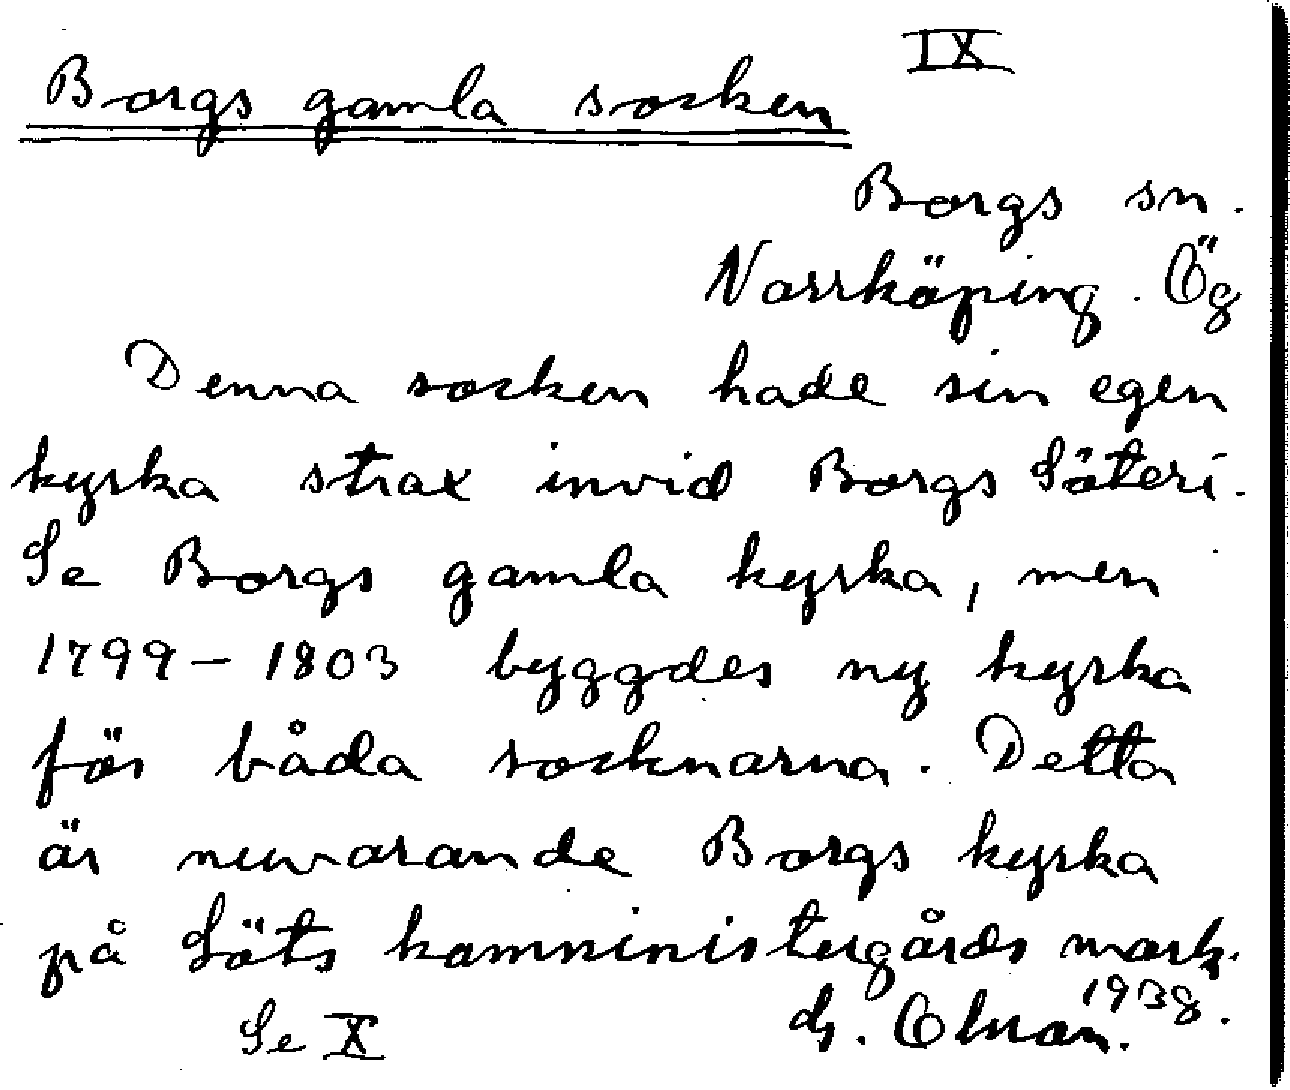 IX
Borgs gamla socken
Borgs sn.
Norrköping. Ög
Denna socken hade sin egen
kyrka strax invid Borgs Säteri.
Se Borgs gamla kyrka, men
1799–1803 byggdes ny kyrka
för båda socknarna. Detta
är nuvarande Borgs kyrka
på Löts komministergårds mark.
1938.
Se X